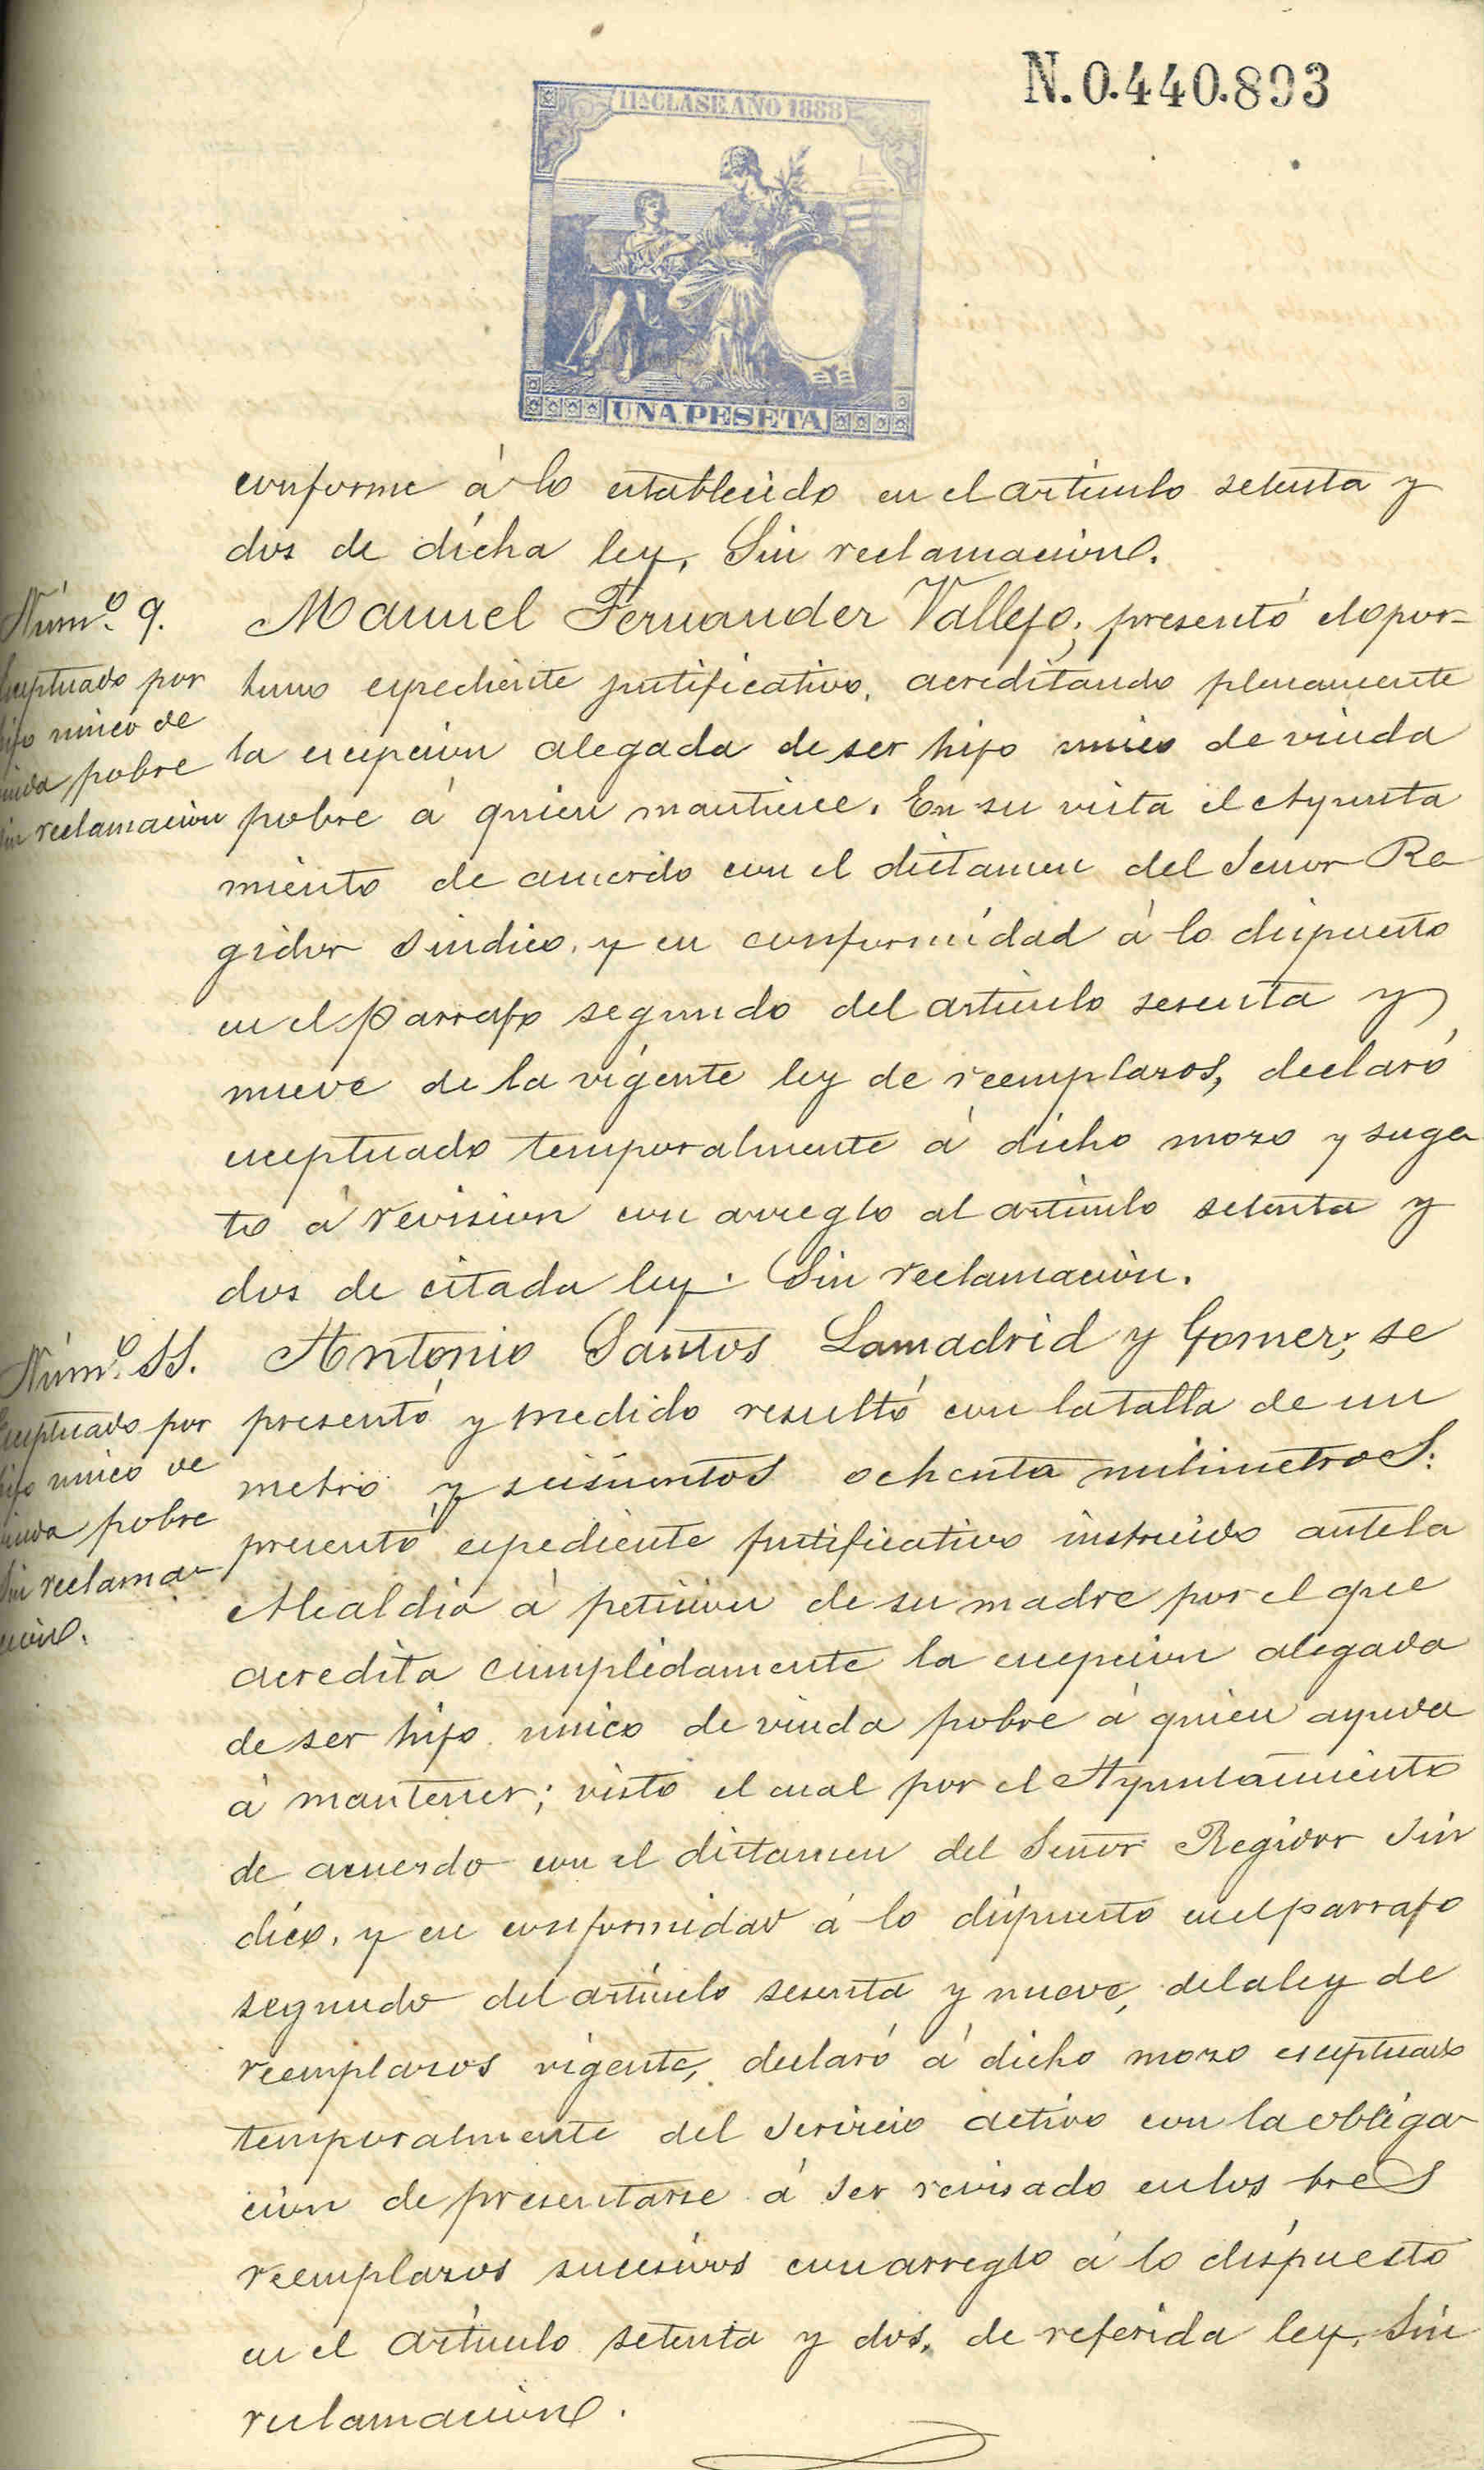 N.0.440.893
11ª CLASE AÑO 1888
UNA PESETA
conforme á lo establecido en el articulo setenta y
dos de dicha ley, Sin reclamacion.
Núm.º 9.
Manuel Fernandez Vallejo, presentó el opor-
tuno expediente justificativo, acreditando plenamente
la excepcion alegada de ser hijo unico de viuda
pobre á quien mantiene. En su vista el Ayunta
miento de acuerdo con el dictamen del Señor Re
gidor Sindico, y en conformidad á lo dispuesto
en el parrafo segundo del articulo sesenta y
nueve de la vigente ley de reemplazos, declaró
exceptuado temporalmente á dicho mozo y suge
to á revision con arreglo al articulo setenta y
dos de citada ley. Sin reclamacion.
exceptuado por
hijo unico de
viuda pobre
sin reclamacion
Núm.º 11.
Antonio Santos Lamadrid y Gomez; se
presentó y medido resultó con la talla de un
metro y seiscientos ochenta milimetros:
presentó expediente justificativo instruido ante la
Alcaldia á peticion de su madre por el que
acredita cumplidamente la excepcion alegada
de ser hijo unico de viuda pobre á quien ayuda
á mantener; visto el cual por el Ayuntamiento
de acuerdo con el dictamen del Señor Regidor Sin
dico, y en conformidad á lo dispuesto en el parrafo
segundo del articulo sesenta y nueve, de la ley de
reemplazos vigente, declaró á dicho mozo exceptuado
temporalmente del Servicio activo con la obliga
cion de presentarse á ser revisado en los tres
reemplazos sucesivos con arreglo á lo dispuesto
en el articulo setenta y dos, de referida ley, Sin
reclamacion.
exceptuado por
hijo unico de
viuda pobre
sin reclama
cion.